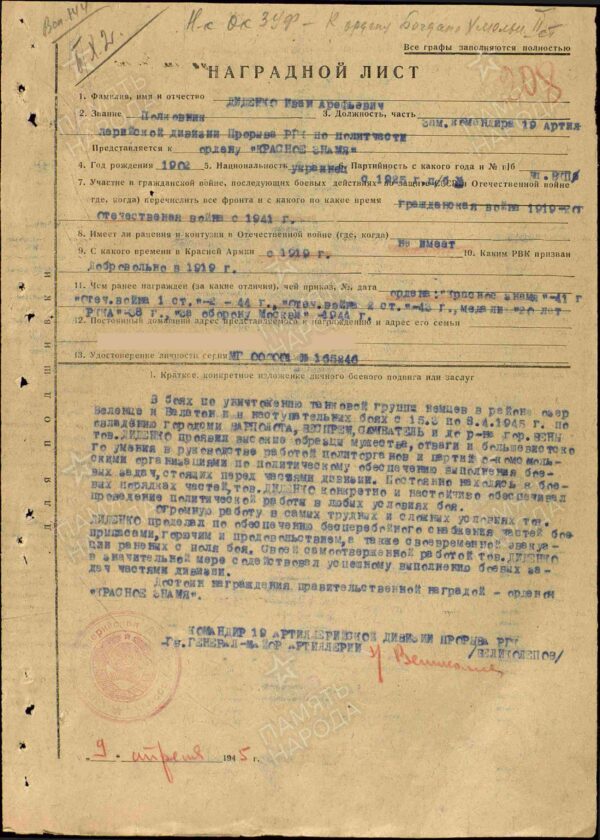 Н-к Ок ЗУФ - К ордену Богдана Хмельн. II ст
Все графы заполняются полностью
НАГРАДНОЙ ЛИСТ
208
1. Фамилия, имя и отчество ДИДЕНКО Иван Арефьевич
2. Звание Полковник 3. Должность, часть Зам. командира 19 Артил-
лерийской дивизии Прорыва РГК по политчасти
Представляется к ордену "КРАСНОЕ ЗНАМЯ"
4. Год рождения 1902 5. Национальность украинец 6. Партийность с какого года и №
с 1925 г.
7. Участие в гражданской войне, последующих боевых действиях по защите СССР и Отечественной войне
где, когда) перечислить все фронта и с какого по какое время гражданская война 1919-20г
Отечественая война с 1941 г.
8. Имеет ли ранения и контузии в Отечественной войне (где, когда) не имеет
9. С какого времени в Красной Армии с 1919 г. 10. Каким РВК призван
добровольно в 1919 г.
11. Чем ранее награжден (за какие отличия), чей приказ, №, дата ордена: "Красное знамя"-41 г
"Отеч.война 1 ст."- - 44 г., "Отеч.война 2 ст."-43 г., медали "20 лет
РККА"-38 г., "За оборону Москвы"-1944 г.
12. Постоянный домашний адрес представляемого к награждению и адрес его семьи
13. Удостоверение личности серия № 165246
1. Краткое, конкретное изложение личного боевого подвига или заслуг
В боях по уничтожению танковой группы немцев в районе озер
Веленце и Балатон и в наступательных боях с 15.3 по 8.4.1945 г. по
овладению городами ВАРПОЛОТА, ВЕСПРЕМ, и др р-не гор. ВЕНЫ
тов. ДИДЕНКО проявил высокие образцы мужества, отваги и большевистско
го умения в руководстве работой политорганов и партий с-комсомоль-
скими организациями по политическому обеспечению выполнения бое-
вых задач, стоящих перед частями дивизии. Постоянно находясь в бое-
вых порядках частей, тов. ДИДЕНКО конкретно и настойчиво обеспечивал
проведение политической работы в любых условиях боя.
Огромную работу в самых трудных и сложных условиях тов.
ДИДЕНКО проделал по обеспечению бесперебойного снабжения частей бое-
припасами, горючим и продовольствием, а также своевременной эвакуа-
ции раненых с поля боя. Своей самоотверженной работой тов. ДИДЕНКО
в значительной мере содействовал успешному выполнению боевых за-
дач частями дивизии.
Достоин награждения правительственной наградой - орденом
"КРАСНОЕ ЗНАМЯ".
КОМАНДИР 19 АРТИЛЛЕРИЙСКОЙ ДИВИЗИИ ПРОРЫВА РГК
Гв. ГЕНЕРАЛ-МАЙОР АРТИЛЛЕРИИ
/ВЕЛИКОЛЕПОВ/
„ 9 „ апреля 1945 г.
ДЛЯ ПОДШИВКИ
ПАМЯТЬ НАРОДА